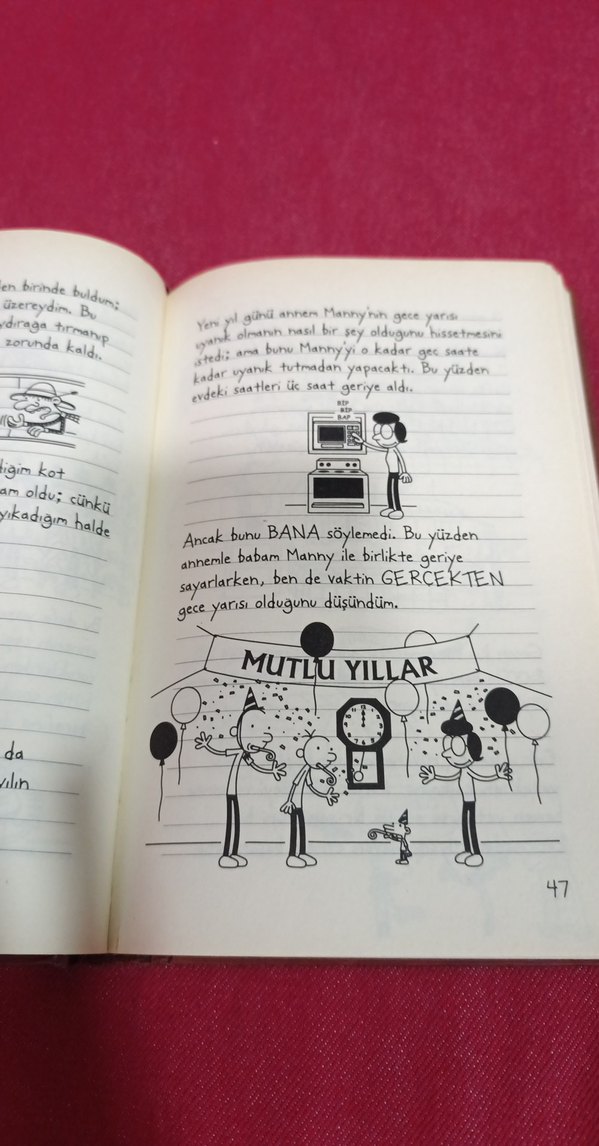 den birinde buldum;
üzereydim. Bu
tırmanıp
zorunda kaldı.
kot
oldu; çünkü
yıkadığım halde
da
yılın
Yeni yıl günü annem Manny'nin gece yarısı
uyanık olmanın nasıl bir şey olduğunu hissetmesini
istedi; ama bunu Manny'yi o kadar geç saate
kadar uyanık tutmadan yapacaktı. Bu yüzden
evdeki saatleri üç saat geriye aldı.
BİP
BİP
BAP
Ancak bunu BANA söylemedi. Bu yüzden
annemle babam Manny ile birlikte geriye
sayarlarken, ben de vaktin GERÇEKTEN
gece yarısı olduğunu düşündüm.
MUTLU YILLAR
47